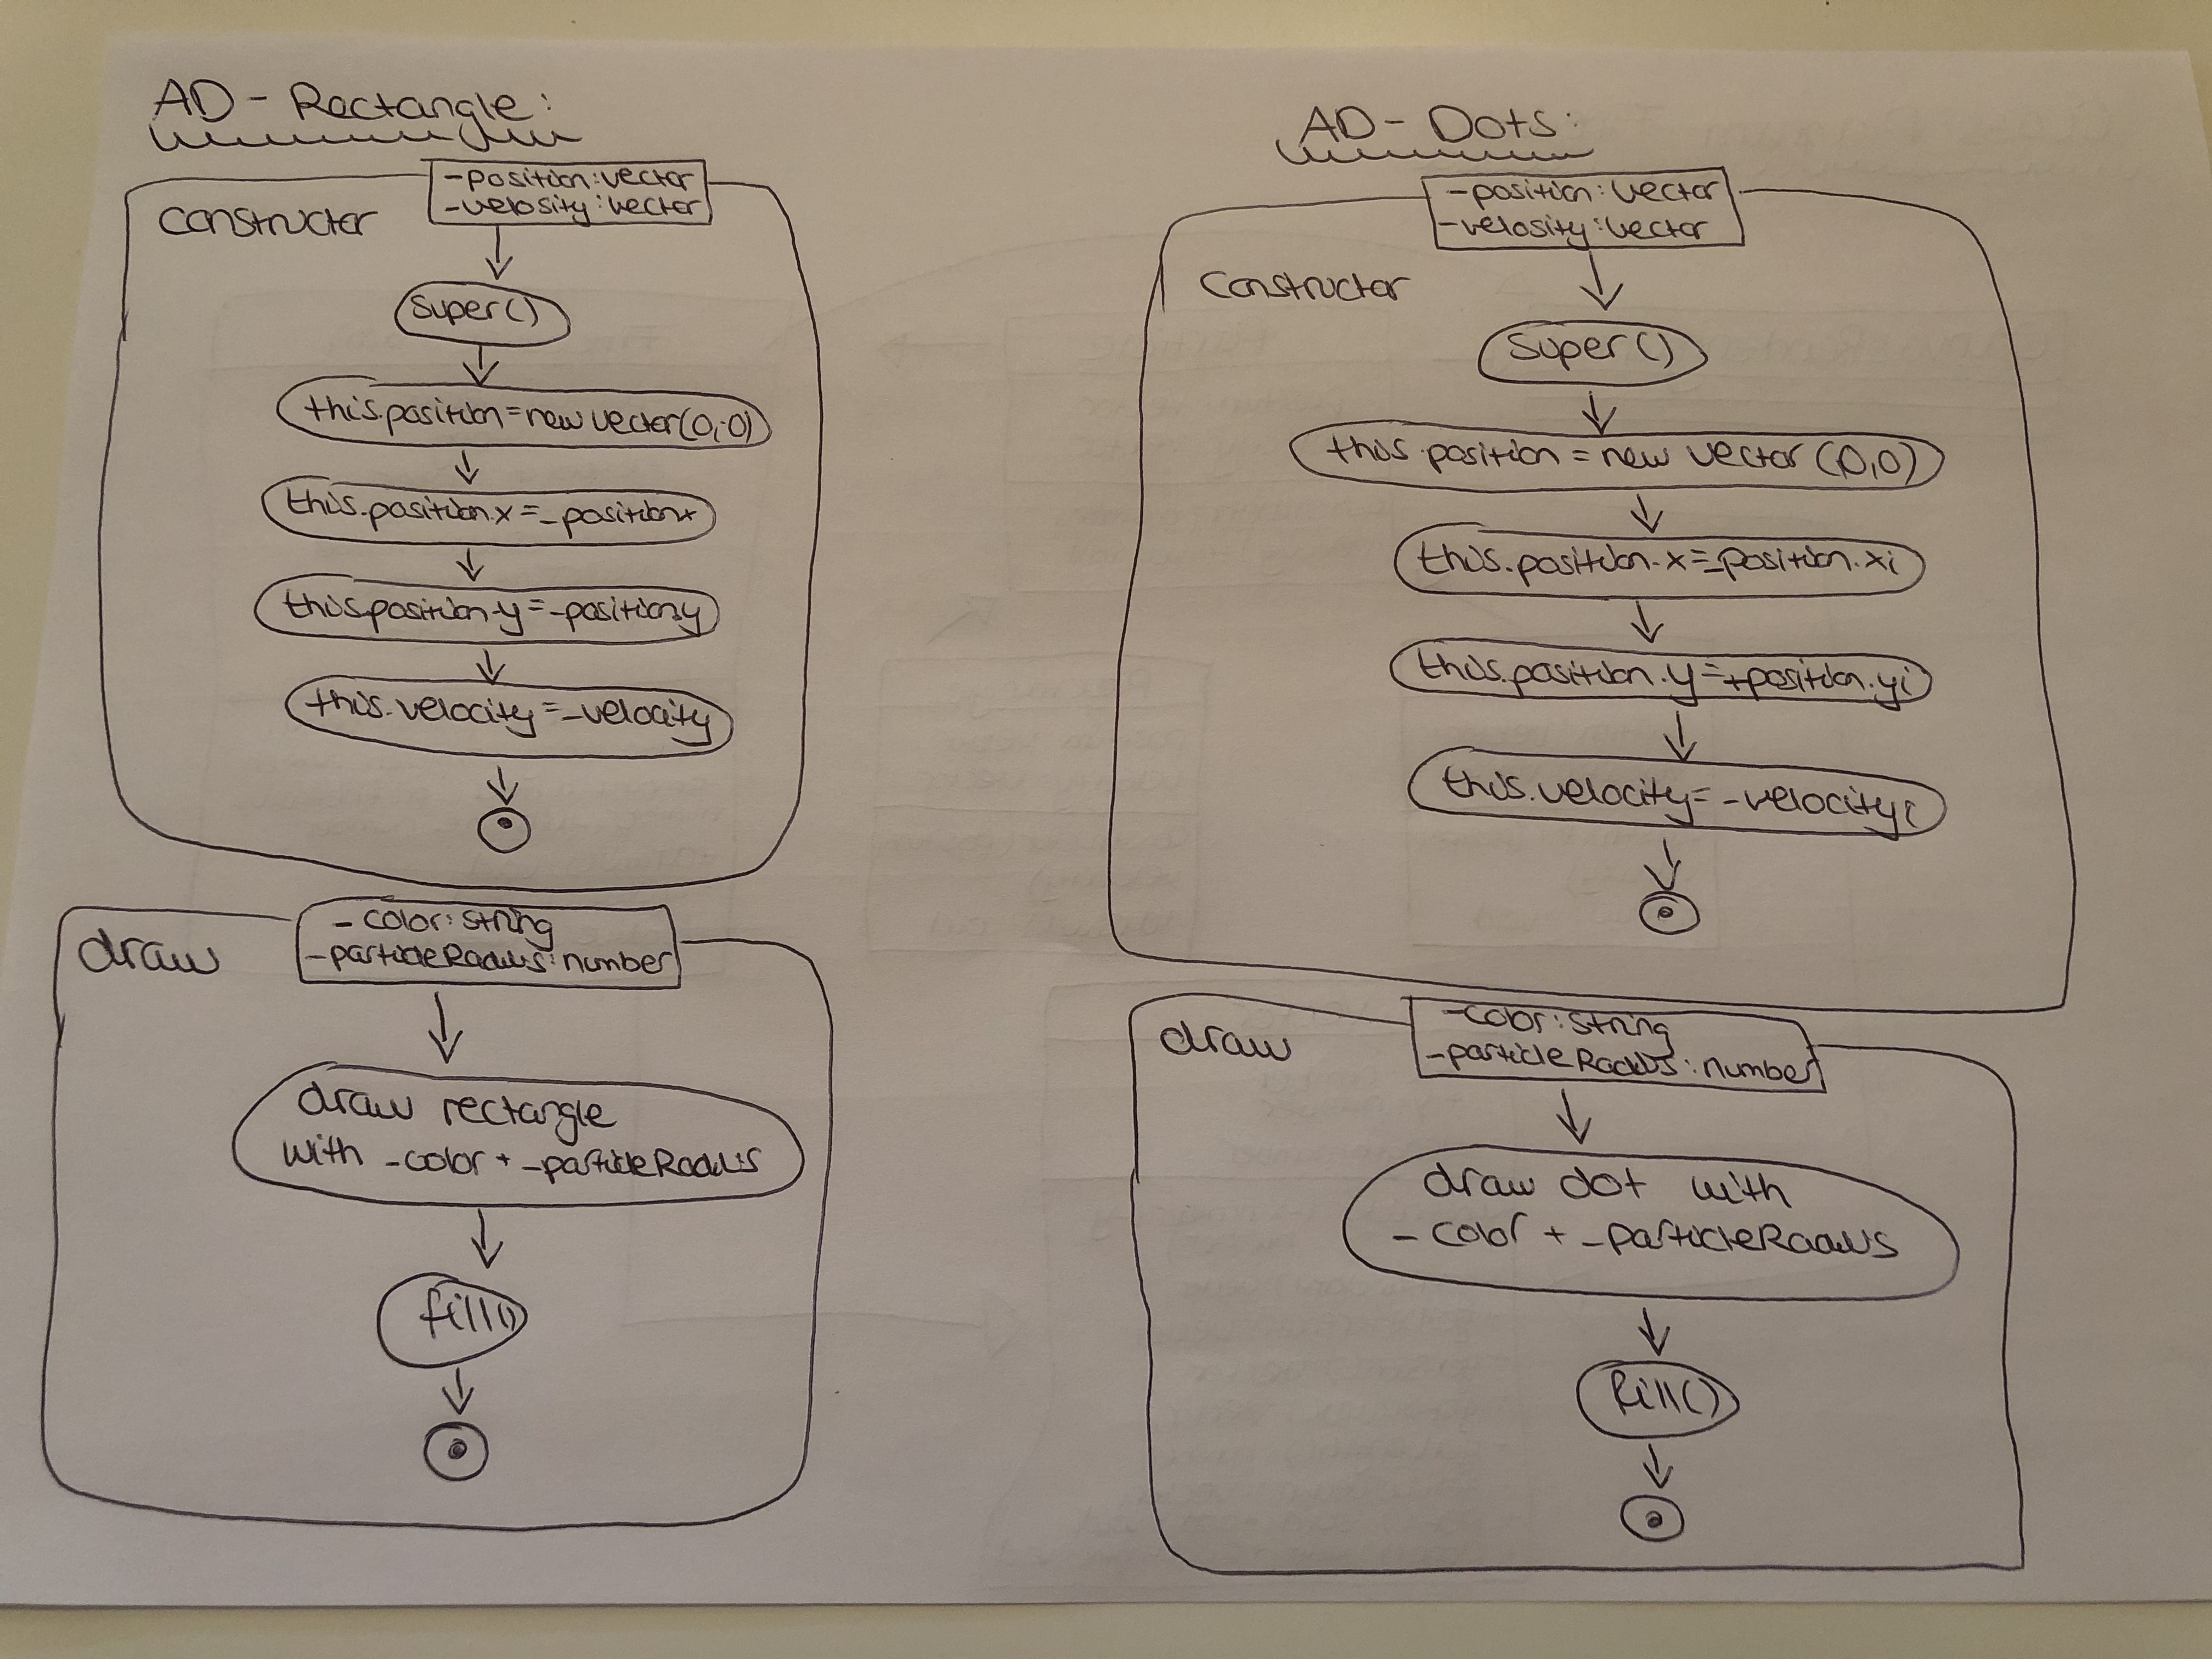 AD-Rectangle:
constructor
-position:vector
-velosity:vector
super()
this.position=new vector(0,0)
this.position.x=_position+
this.position.y=_position.y
this.velocity=_velocity
draw
-color:string
-particleRadius:number
draw rectangle
with -color + -particleRadius
fill()
AD-Dots:
Constructor
-position:vector
-velosity:vector
Super()
this.position = new vector (0,0)
this.position.x=_position.x;
this.position.y=+position.y;
this.velocity=-velocity;
draw
-color:string
-particleRadius:number
draw dot with
-color + -particleRadius
fill()